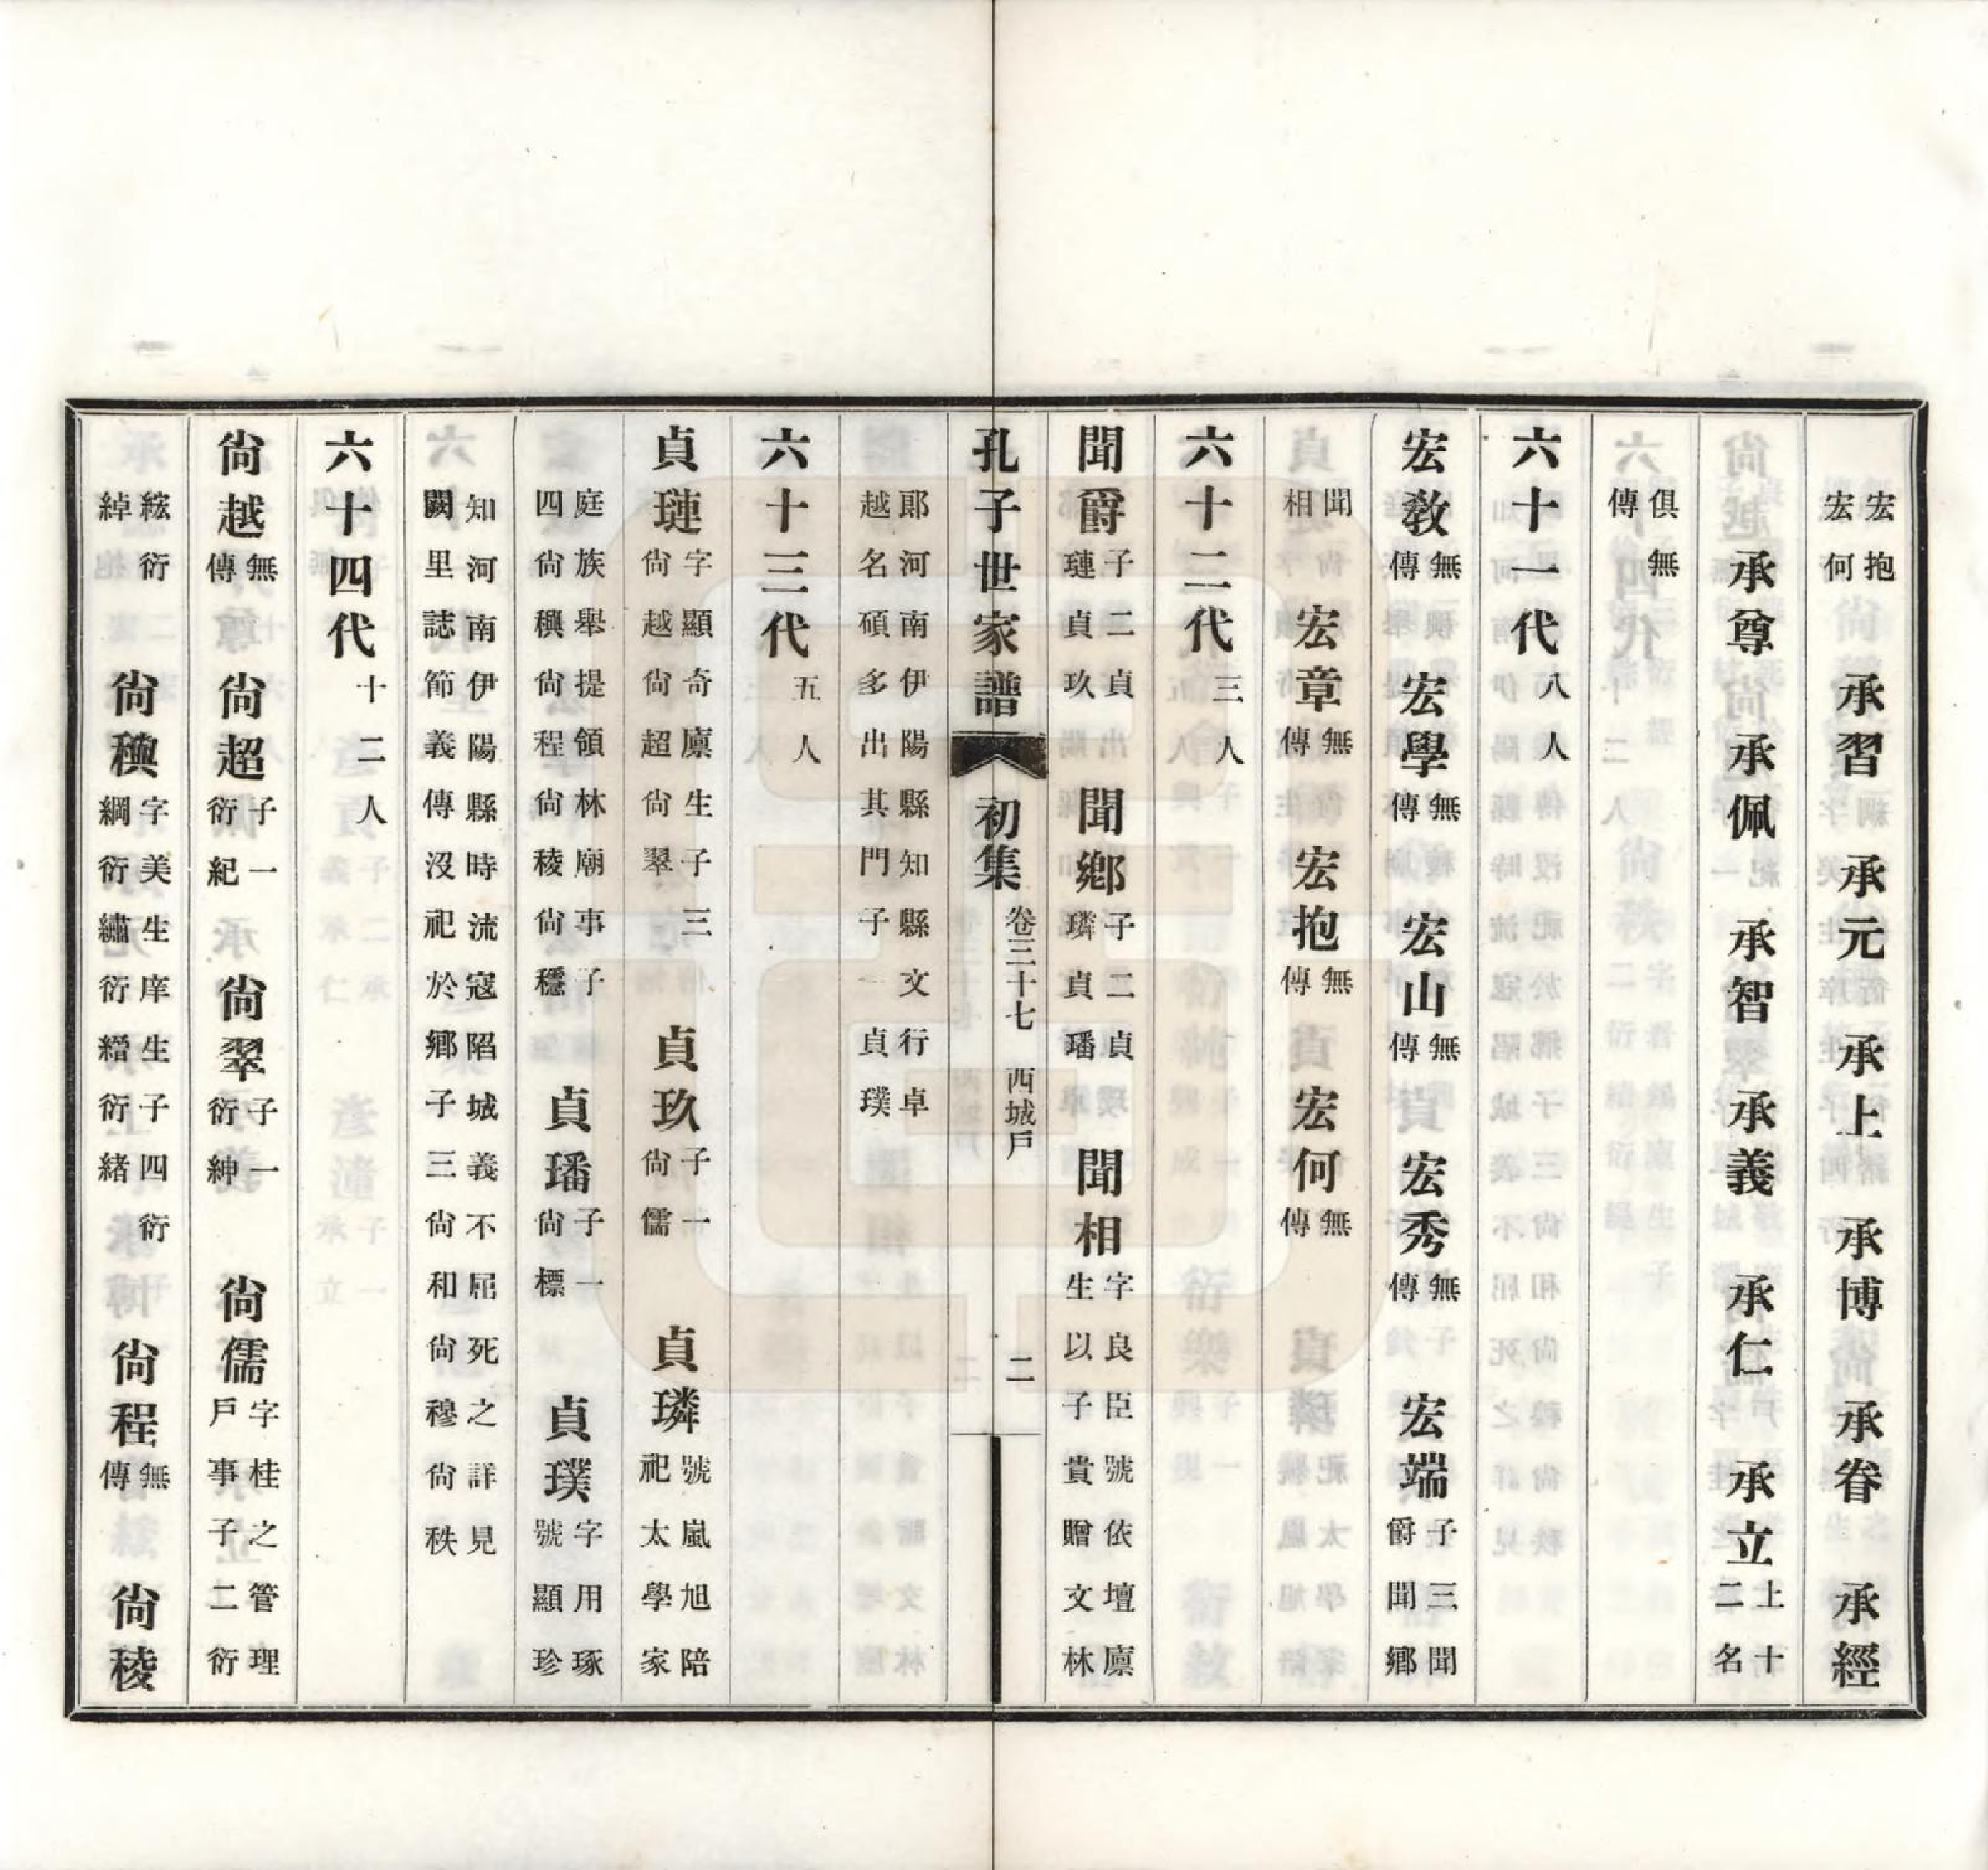 宏抱宏何　承習　承元　承上　承博　承眷　承經
承尊　承佩　承智　承義　承仁　承立上十二名
俱無傳
六十一代八人
宏教無傳　宏學無傳　宏山無傳　宏秀無傳　宏端子三聞爵聞鄉
聞相　宏章無傳　宏抱無傳　宏何無傳
六十二代三人
聞爵子二貞璉貞玖　聞鄉子二貞璘貞璠　聞相字良臣號依壇廩生以子貴贈文林
孔子世家譜　初集　卷三十七　西城戶　二
郎河南伊陽縣知縣文行卓越名碩多出其門子一貞璞
六十三代五人
貞璉字顯奇廩生子三尙越尙超尙翠　貞玖子一尙儒　貞璘號嵐旭陪祀太學家
庭族舉提領林廟事子四尙穓尙程尙稜尙穩　貞璠子一尙標　貞璞字用琢號顯珍
知河南伊陽縣時流寇陷城義不屈死之詳見闕里誌節義傳沒祀於鄉子三尙和尙穆尙秩
六十四代十二人
尙越無傳　尙超子一衍紀　尙翠子一衍紳　尙儒字桂之管理戶事子二衍
絃衍綽　尙穓字美生庠生子四衍綱衍繡衍縉衍緒　尙程無傳　尙稜